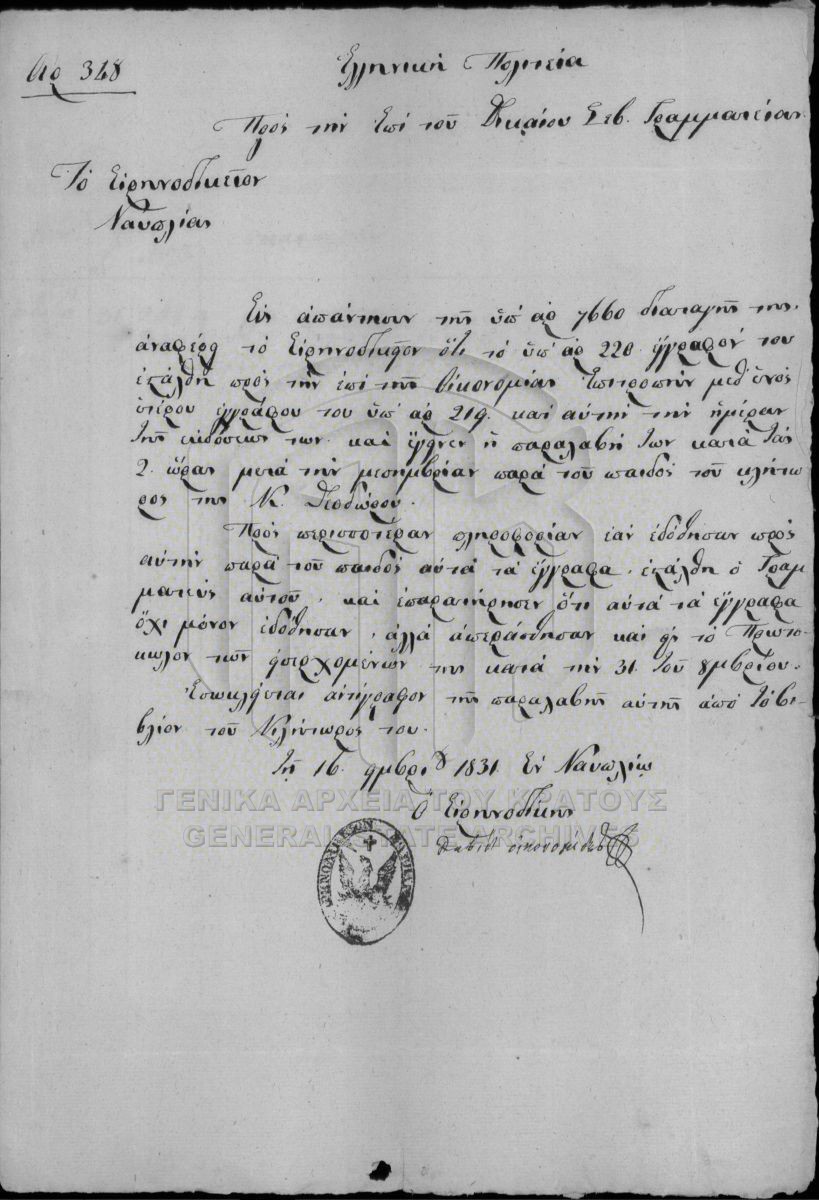 Αρ 348
Ελληνική Πολιτεία
Πρός την Επί του Δικαίου Σεβ. Γραμματείαν
Τό Ειρηνοδικείον
Ναυπλίας
Εις απάντησιν της υπ' αρ 7660 διαταγής της,
αναφέρει το Ειρηνοδικείον ότι το υπ' αρ 220 έγγραφόν του
εστάλθη προς την επί της Οικονομίας Επιτροπήν μεθ' ενός
ετέρου εγγράφου του υπ' αρ 219. και αυτήν την ημέραν
της εκδόσεώς των. και έγεινεν η παραλαβή των κατά τας
2. ώρας μετά την μεσημβρίαν παρά του παιδός του κλήτω
ρος της Κ. Θεοδώρου.
Πρός περισσοτέραν πληροφορίαν εάν εδόθησαν προς
αυτήν παρά του παιδός αυτά τα έγγραφα, εστάλθη ο Γραμ
ματεύς αυτού, και επαρατήρησεν ότι αυτά τα έγγραφα
όχι μόνον εδόθησαν, αλλά επεράσθησαν και εις το Πρωτο-
κωλον των εισερχομένων της κατά την 31 του 8μβρίου.
Εσωκλείεται αντίγραφον της παραλαβής αυτής από το βι-
βλίον του Κλήτωρός του.
Τη 16 9μβρίου 1831 Εν Ναυπλίω
Ο Ειρηνοδίκης
Δαβίδ οικονομίδης
ΓΕΝΙΚΑ ΑΡΧΕΙΑ ΤΟΥ ΚΡΑΤΟΥΣ
GENERAL STATE ARCHIVES